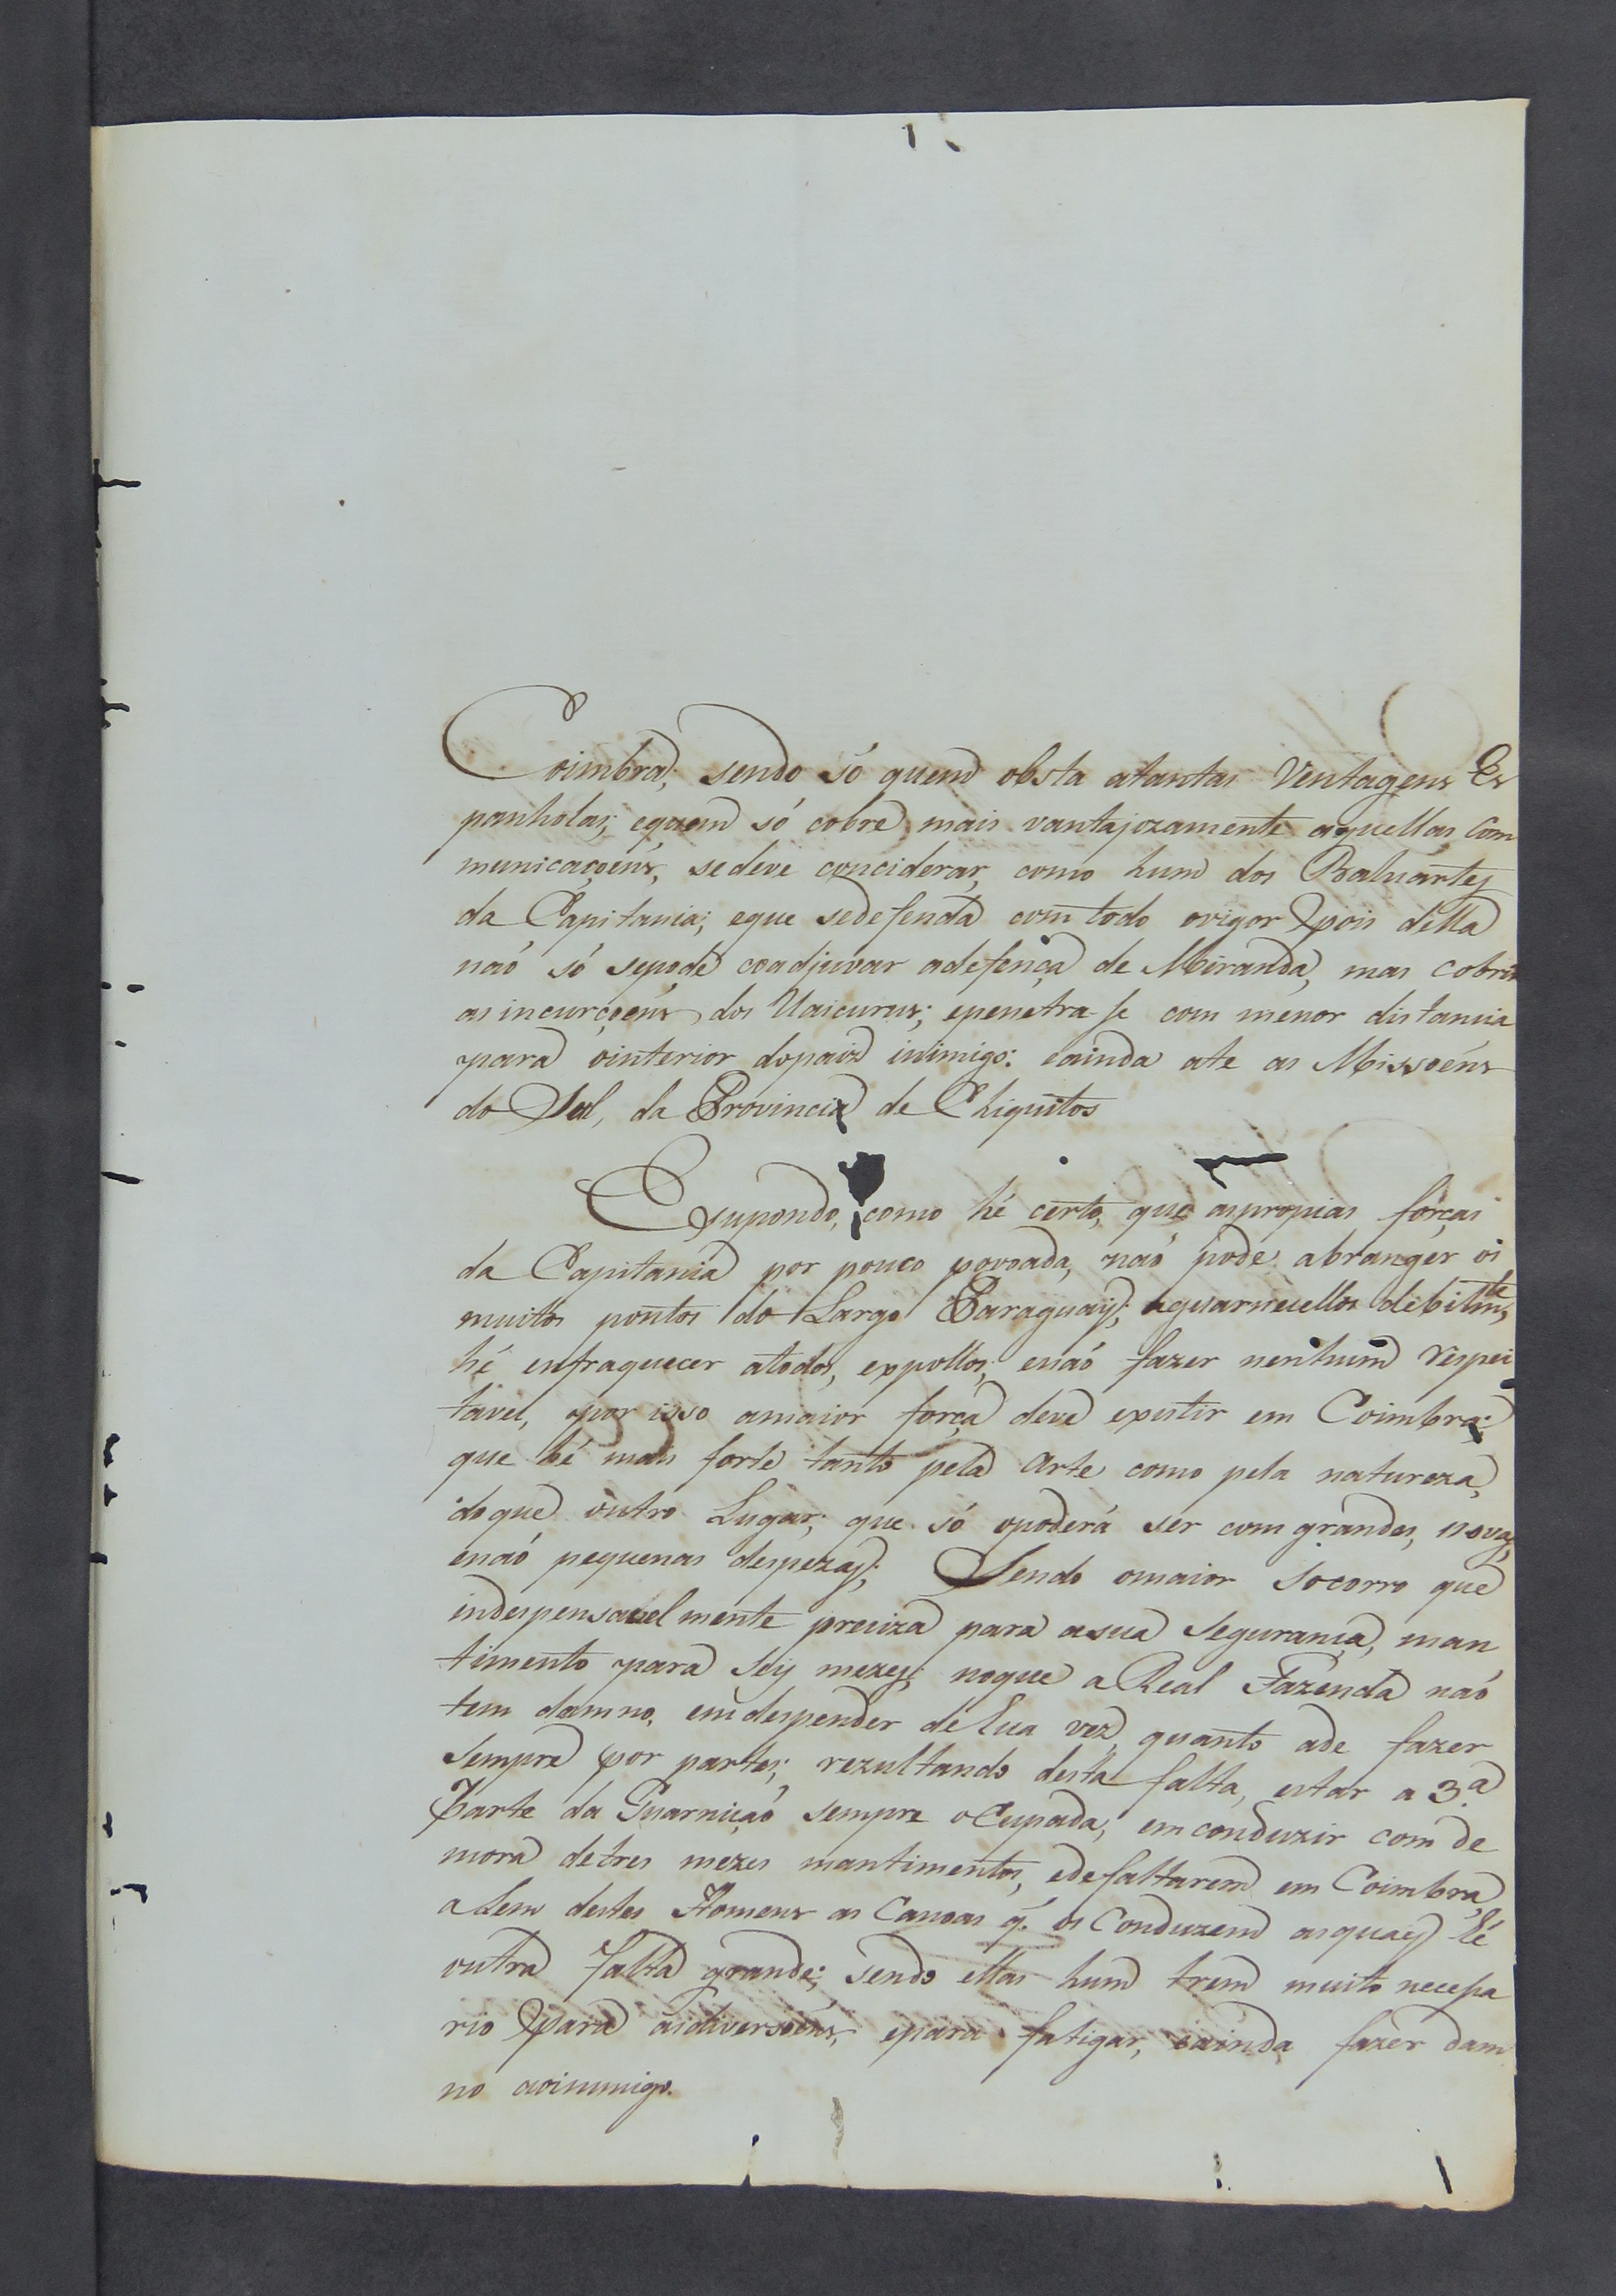 Coimbra; sendo só quem obsta atantas Ventagens Es
panholas; equem só cobre mais vantajozamente aquellas Com
municaçoéns, sedeve conciderar, como hum dos Baluartes
da Capitania; eque sedefenda com todo ovigor pois della
naó só sepode coadjuvar adefença de Miranda, mas cobrir
as incurçoéns dos Uaicurus; epenetra se com menor distancia
para ointerior dopaiz inimigo: eainda ate as Missoéns
do Sul, da Provincia de Chiquitos
Esupondo, como hé certo, que aspropias forças
da Capitania por pouco povoada, naó pode abranger os
muitos pontos do Largo Paraguay; eguarnecellos debilmte,
hé enfraquecer atodos, expollos, enaó fazer nenhum respei
tavel, por isso amaior força deve existir em Coimbra;
que hé mais forte tanto pela Arte como pela natureza,
doque outro Lugar; que só opoderá ser com grandes, novas,
enaó pequenas despezas; Sendo omaior socorro que
indespensavelmente preciza para asua Segurança, man
timento para seis mezes; noque a Real Fazenda naó
tem damno, em despender de hua vez, quanto ade fazer
sempre por partes; rezultando desta falta, estar a 3.ª
Parte da Guarniçaó sempre oCupada, em conduzir com de
mora detres mezes mantimentos, edefaltarem em Coimbra,
alem destes Homens as Canoas q. os Conduzem asquaes hé
outra falta grande; sendo ellas hum trem muito necessa
rio para asdiversoéns, epara fatigar, eainda fazer dam
no aoinimigo.